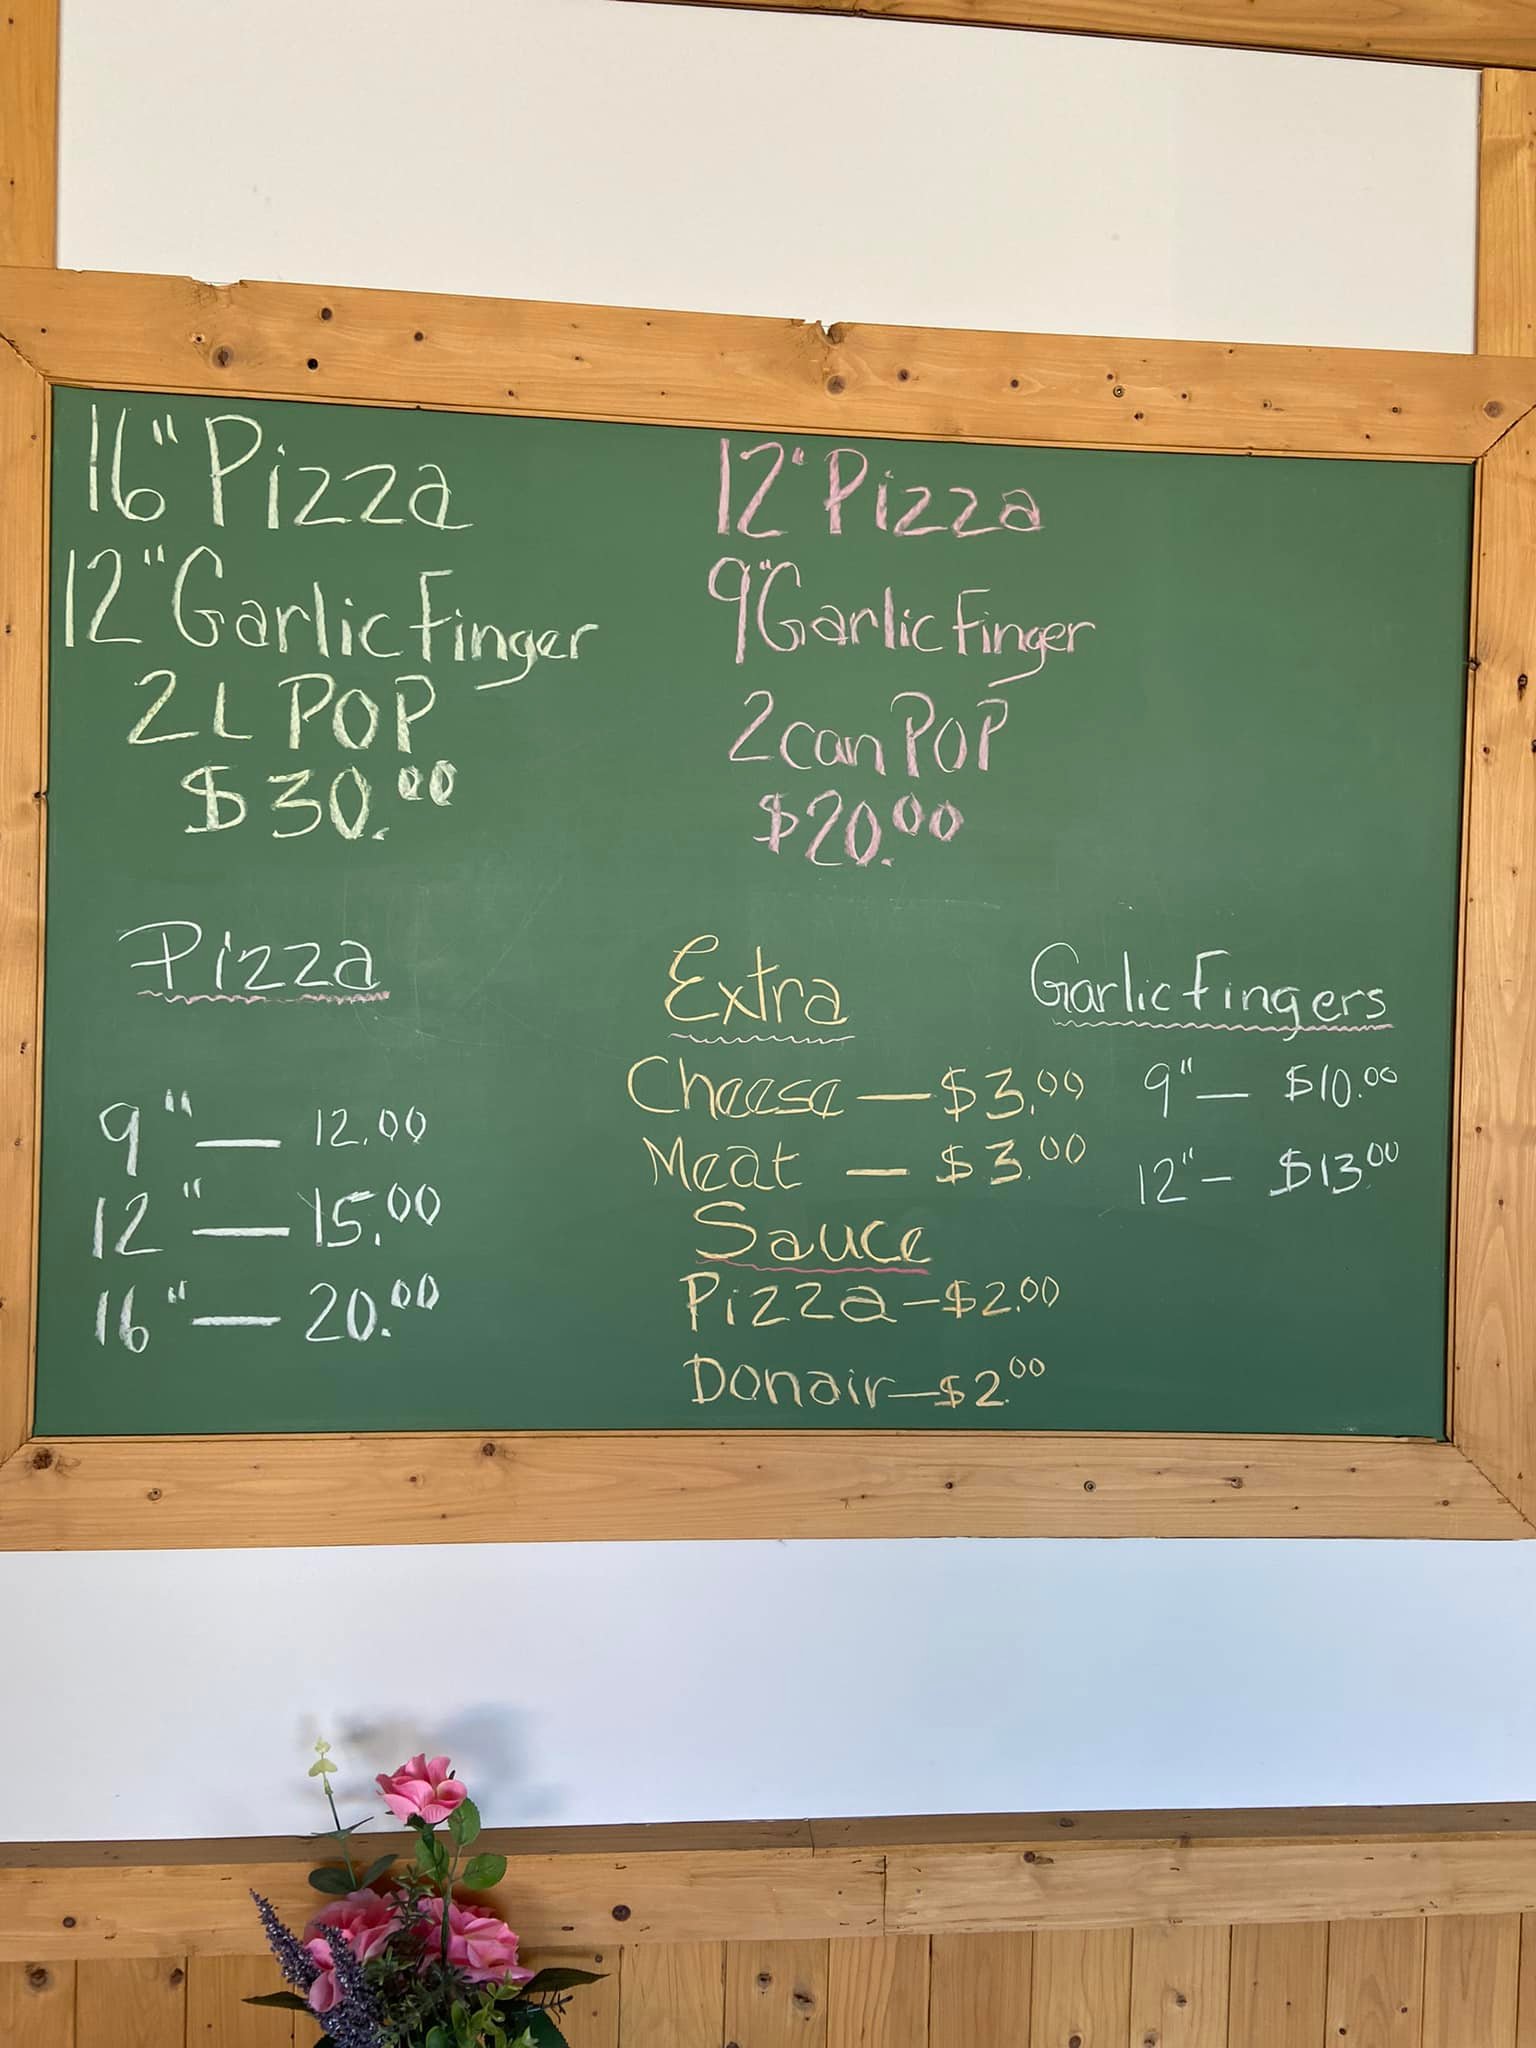 16" Pizza
12" Garlic Finger
2L POP
$30.00
12" Pizza
9" Garlic Finger
2 can POP
$20.00
Pizza
9" — 12.00
12" — 15.00
16" — 20.00
Extra
Cheese — $3.00
Meat — $3.00
Sauce
Pizza - $2.00
Donair — $2.00
Garlic Fingers
9" — $10.00
12" - $13.00